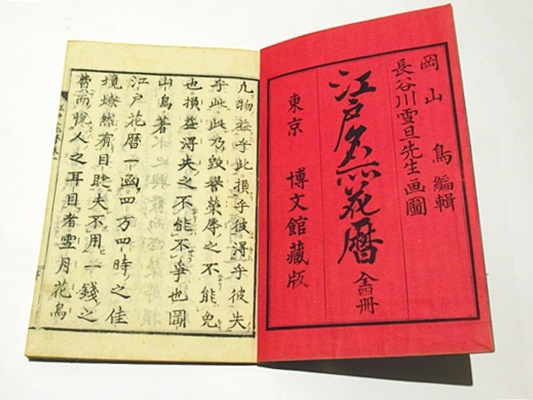 岡山鳥編輯
長谷川雪旦先生画圖
江戸名所花暦 全四冊
東京 博文館藏版
凢物益乎此損乎彼淂乎彼失
乎此此乃毀譽榮辱之不能免
也損益淂失之不能不爭也岡
山鳥著
江戸花暦一函四方四時之佳
境燎然有目睫夫不用一錢之
費而悅人之耳目者雪月花鳥